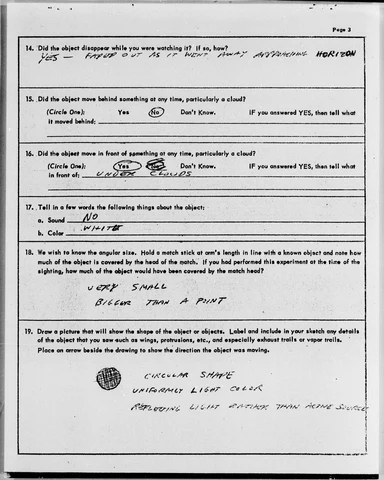 Page 3
14. Did the object disappear while you were watching it? If so, how?
YES - FADED OUT AS IT WENT AWAY APPROACHING HORIZON
15. Did the object move behind something at any time, particularly a cloud?
(Circle One): Yes No Don't Know. IF you answered YES, then tell what
it moved behind:
16. Did the object move in front of something at any time, particularly a cloud?
(Circle One): Yes No Don't Know. IF you answered YES, then tell what
in front of: UNDER CLOUDS
17. Tell in a few words the following things about the object:
a. Sound NO
b. Color WHITE
18. We wish to know the angular size. Hold a match stick at arm's length in line with a known object and note how
much of the object is covered by the head of the match. If you had performed this experiment at the time of the
sighting, how much of the object would have been covered by the match head?
VERY SMALL
BIGGER THAN A POINT
19. Draw a picture that will show the shape of the object or objects. Label and include in your sketch any details
of the object that you saw such as wings, protrusions, etc., and especially exhaust trails or vapor trails.
Place an arrow beside the drawing to show the direction the object was moving.
CIRCULAR SHAPE
UNIFORMLY LIGHT COLOR
REFLECTING LIGHT RATHER THAN ACTIVE SOURCE